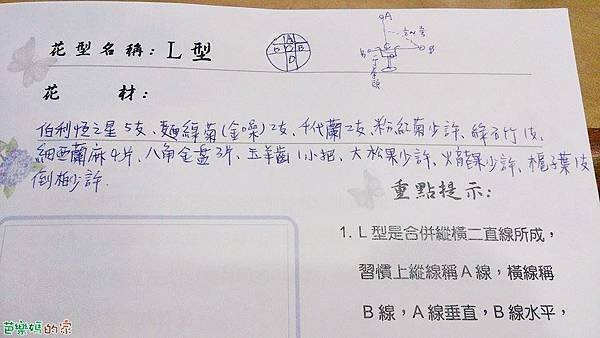 花型名稱：L型
花材：
伯利恆之星5支、麵線菊(金嗓)2支、千代蘭2支、粉紅菊少許、綠石竹1支、
細西蘭麻4片、八角金盤3片、玉羊齒1小把、大松果少許、火龍果少許、梔子葉1支
倒柏少許.
重點提示：
1. L型是合併縱橫二直線所成，
習慣上縱線稱A線，橫線稱
B線，A線垂直，B線水平，
芭樂媽的家